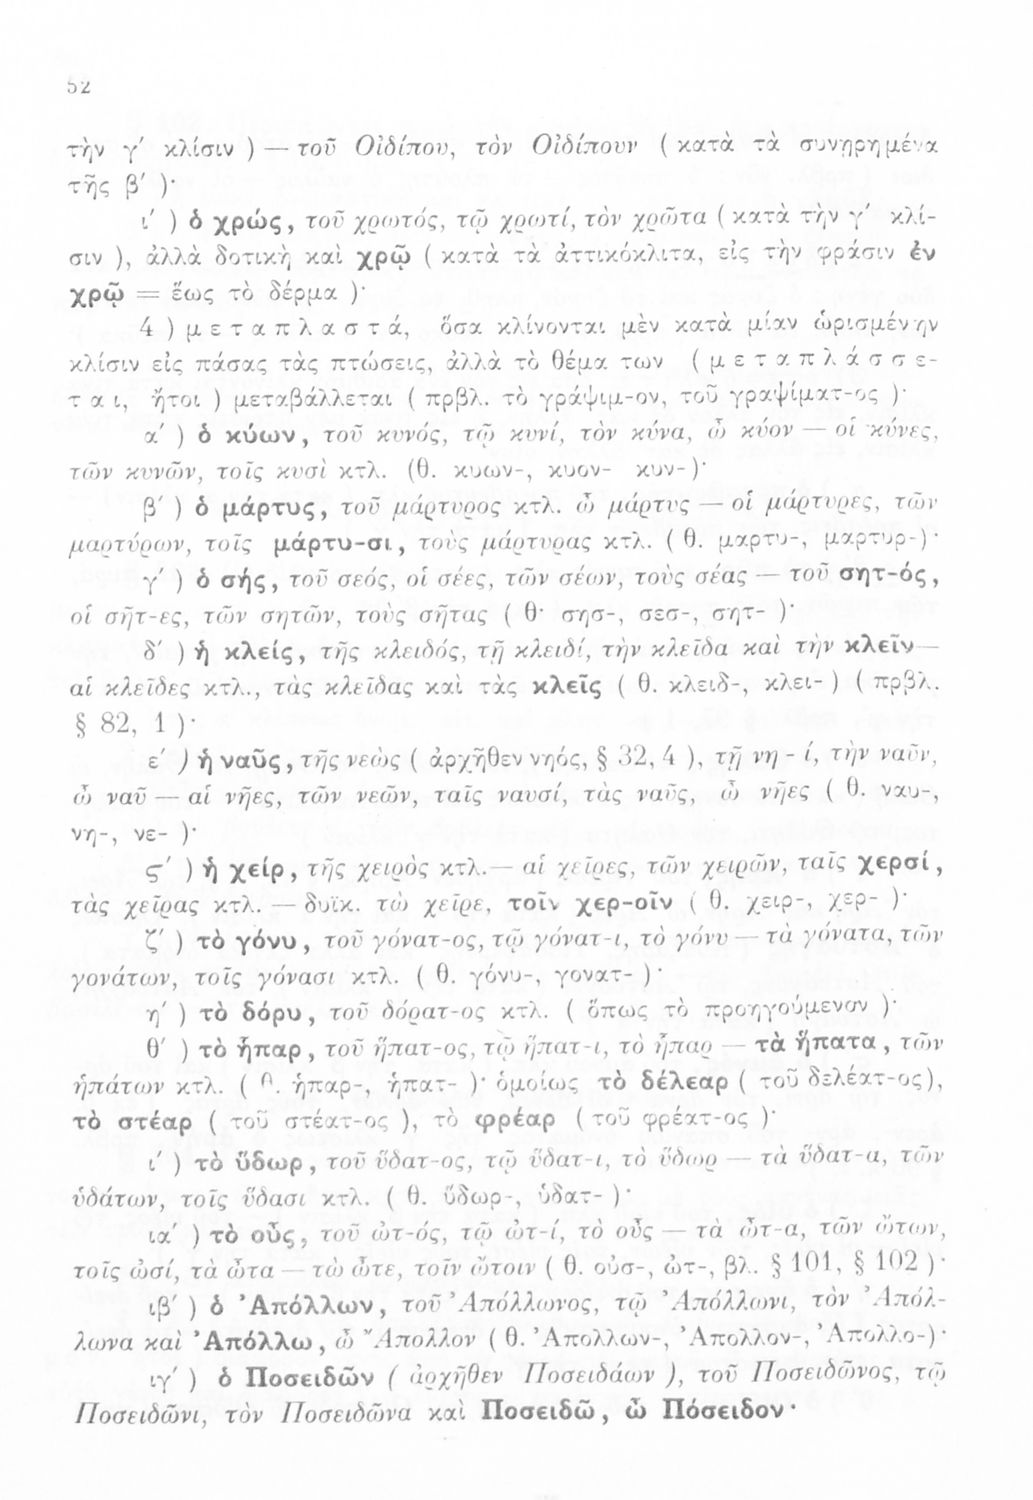 52
τὴν γ′ κλίσιν ) — τοῦ Οἰδίπου, τὸν Οἰδίπουν ( κατὰ τὰ συνῃρημένα
τῆς β′ )·
ι′ ) ὁ χρώς, τοῦ χρωτός, τῷ χρωτί, τὸν χρῶτα ( κατὰ τὴν γ′ κλί-
σιν ), ἀλλὰ δοτικὴ καὶ χρῷ ( κατὰ τὰ ἀττικόκλιτα, εἰς τὴν φράσιν ἐν
χρῷ = ἕως τὸ δέρμα )·
4 ) μεταπλαστά, ὅσα κλίνονται μὲν κατὰ μίαν ὡρισμένην
κλίσιν εἰς πάσας τὰς πτώσεις, ἀλλὰ τὸ θέμα των ( μεταπλάσσε-
ται, ἤτοι ) μεταβάλλεται ( πρβλ. τὸ γράψιμ-ον, τοῦ γραψίματ-ος )·
α′ ) ὁ κύων, τοῦ κυνός, τῷ κυνί, τὸν κύνα, ὦ κύον — οἱ κύνες,
τῶν κυνῶν, τοῖς κυσὶ κτλ. (θ. κυων-, κυον- κυν-)·
β′ ) ὁ μάρτυς, τοῦ μάρτυρος κτλ. ὦ μάρτυς — οἱ μάρτυρες, τῶν
μαρτύρων, τοῖς μάρτυ-σι, τοὺς μάρτυρας κτλ. ( θ. μαρτυ-, μαρτυρ-)·
γ′ ) ὁ σής, τοῦ σεός, οἱ σέες, τῶν σέων, τοὺς σέας — τοῦ σητ-ός,
οἱ σῆτ-ες, τῶν σητῶν, τοὺς σῆτας ( θ· σησ-, σεσ-, σητ- )·
δ′ ) ἡ κλείς, τῆς κλειδός, τῇ κλειδί, τὴν κλεῖδα καὶ τὴν κλεῖν —
αἱ κλεῖδες κτλ., τὰς κλεῖδας καὶ τὰς κλεῖς ( θ. κλειδ-, κλει- ) ( πρβλ.
§ 82, 1 )·
ε′ ) ἡ ναῦς, τῆς νεὼς ( ἀρχῆθεν νηός, § 32, 4 ), τῇ νη - ί, τὴν ναῦν,
ὦ ναῦ — αἱ νῆες, τῶν νεῶν, ταῖς ναυσί, τὰς ναῦς, ὦ νῆες ( θ. ναυ-,
νη-, νε- )·
ς′ ) ἡ χείρ, τῆς χειρὸς κτλ.— αἱ χεῖρες, τῶν χειρῶν, ταῖς χερσί,
τὰς χεῖρας κτλ. — δυϊκ. τὼ χεῖρε, τοῖν χερ-οῖν ( θ. χειρ-, χερ- )·
ζ′ ) τὸ γόνυ, τοῦ γόνατ-ος, τῷ γόνατ-ι, τὸ γόνυ — τὰ γόνατα, τῶν
γονάτων, τοῖς γόνασι κτλ. ( θ. γόνυ-, γονατ- )·
η′ ) τὸ δόρυ, τοῦ δόρατ-ος κτλ. ( ὅπως τὸ προηγούμενον )·
θ′ ) τὸ ἧπαρ, τοῦ ἥπατ-ος, τῷ ἥπατ-ι, τὸ ἧπαρ — τὰ ἥπατα, τῶν
ἡπάτων κτλ. ( θ. ἡπαρ-, ἡπατ- )· ὁμοίως τὸ δέλεαρ ( τοῦ δελέατ-ος),
τὸ στέαρ ( τοῦ στέατ-ος ), τὸ φρέαρ ( τοῦ φρέατ-ος )·
ι′ ) τὸ ὕδωρ, τοῦ ὕδατ-ος, τῷ ὕδατ-ι, τὸ ὕδωρ — τὰ ὕδατ-α, τῶν
ὑδάτων, τοῖς ὕδασι κτλ. ( θ. ὕδωρ-, ὑδατ- )·
ια′ ) τὸ οὖς, τοῦ ὠτ-ός, τῷ ὠτ-ί, τὸ οὖς — τὰ ὦτ-α, τῶν ὤτων,
τοῖς ὠσί, τὰ ὦτα — τὼ ὦτε, τοῖν ὤτοιν ( θ. οὐσ-, ὠτ-, βλ. § 101, § 102 )·
ιβ′ ) ὁ Ἀπόλλων, τοῦ Ἀπόλλωνος, τῷ Ἀπόλλωνι, τὸν Ἀπόλ-
λωνα καὶ Ἀπόλλω, ὦ Ἄπολλον ( θ. Ἀπολλων-, Ἀπολλον-, Ἀπολλο-)·
ιγ′ ) ὁ Ποσειδῶν ( ἀρχῆθεν Ποσειδάων ), τοῦ Ποσειδῶνος, τῷ
Ποσειδῶνι, τὸν Ποσειδῶνα καὶ Ποσειδῶ, ὦ Πόσειδον·